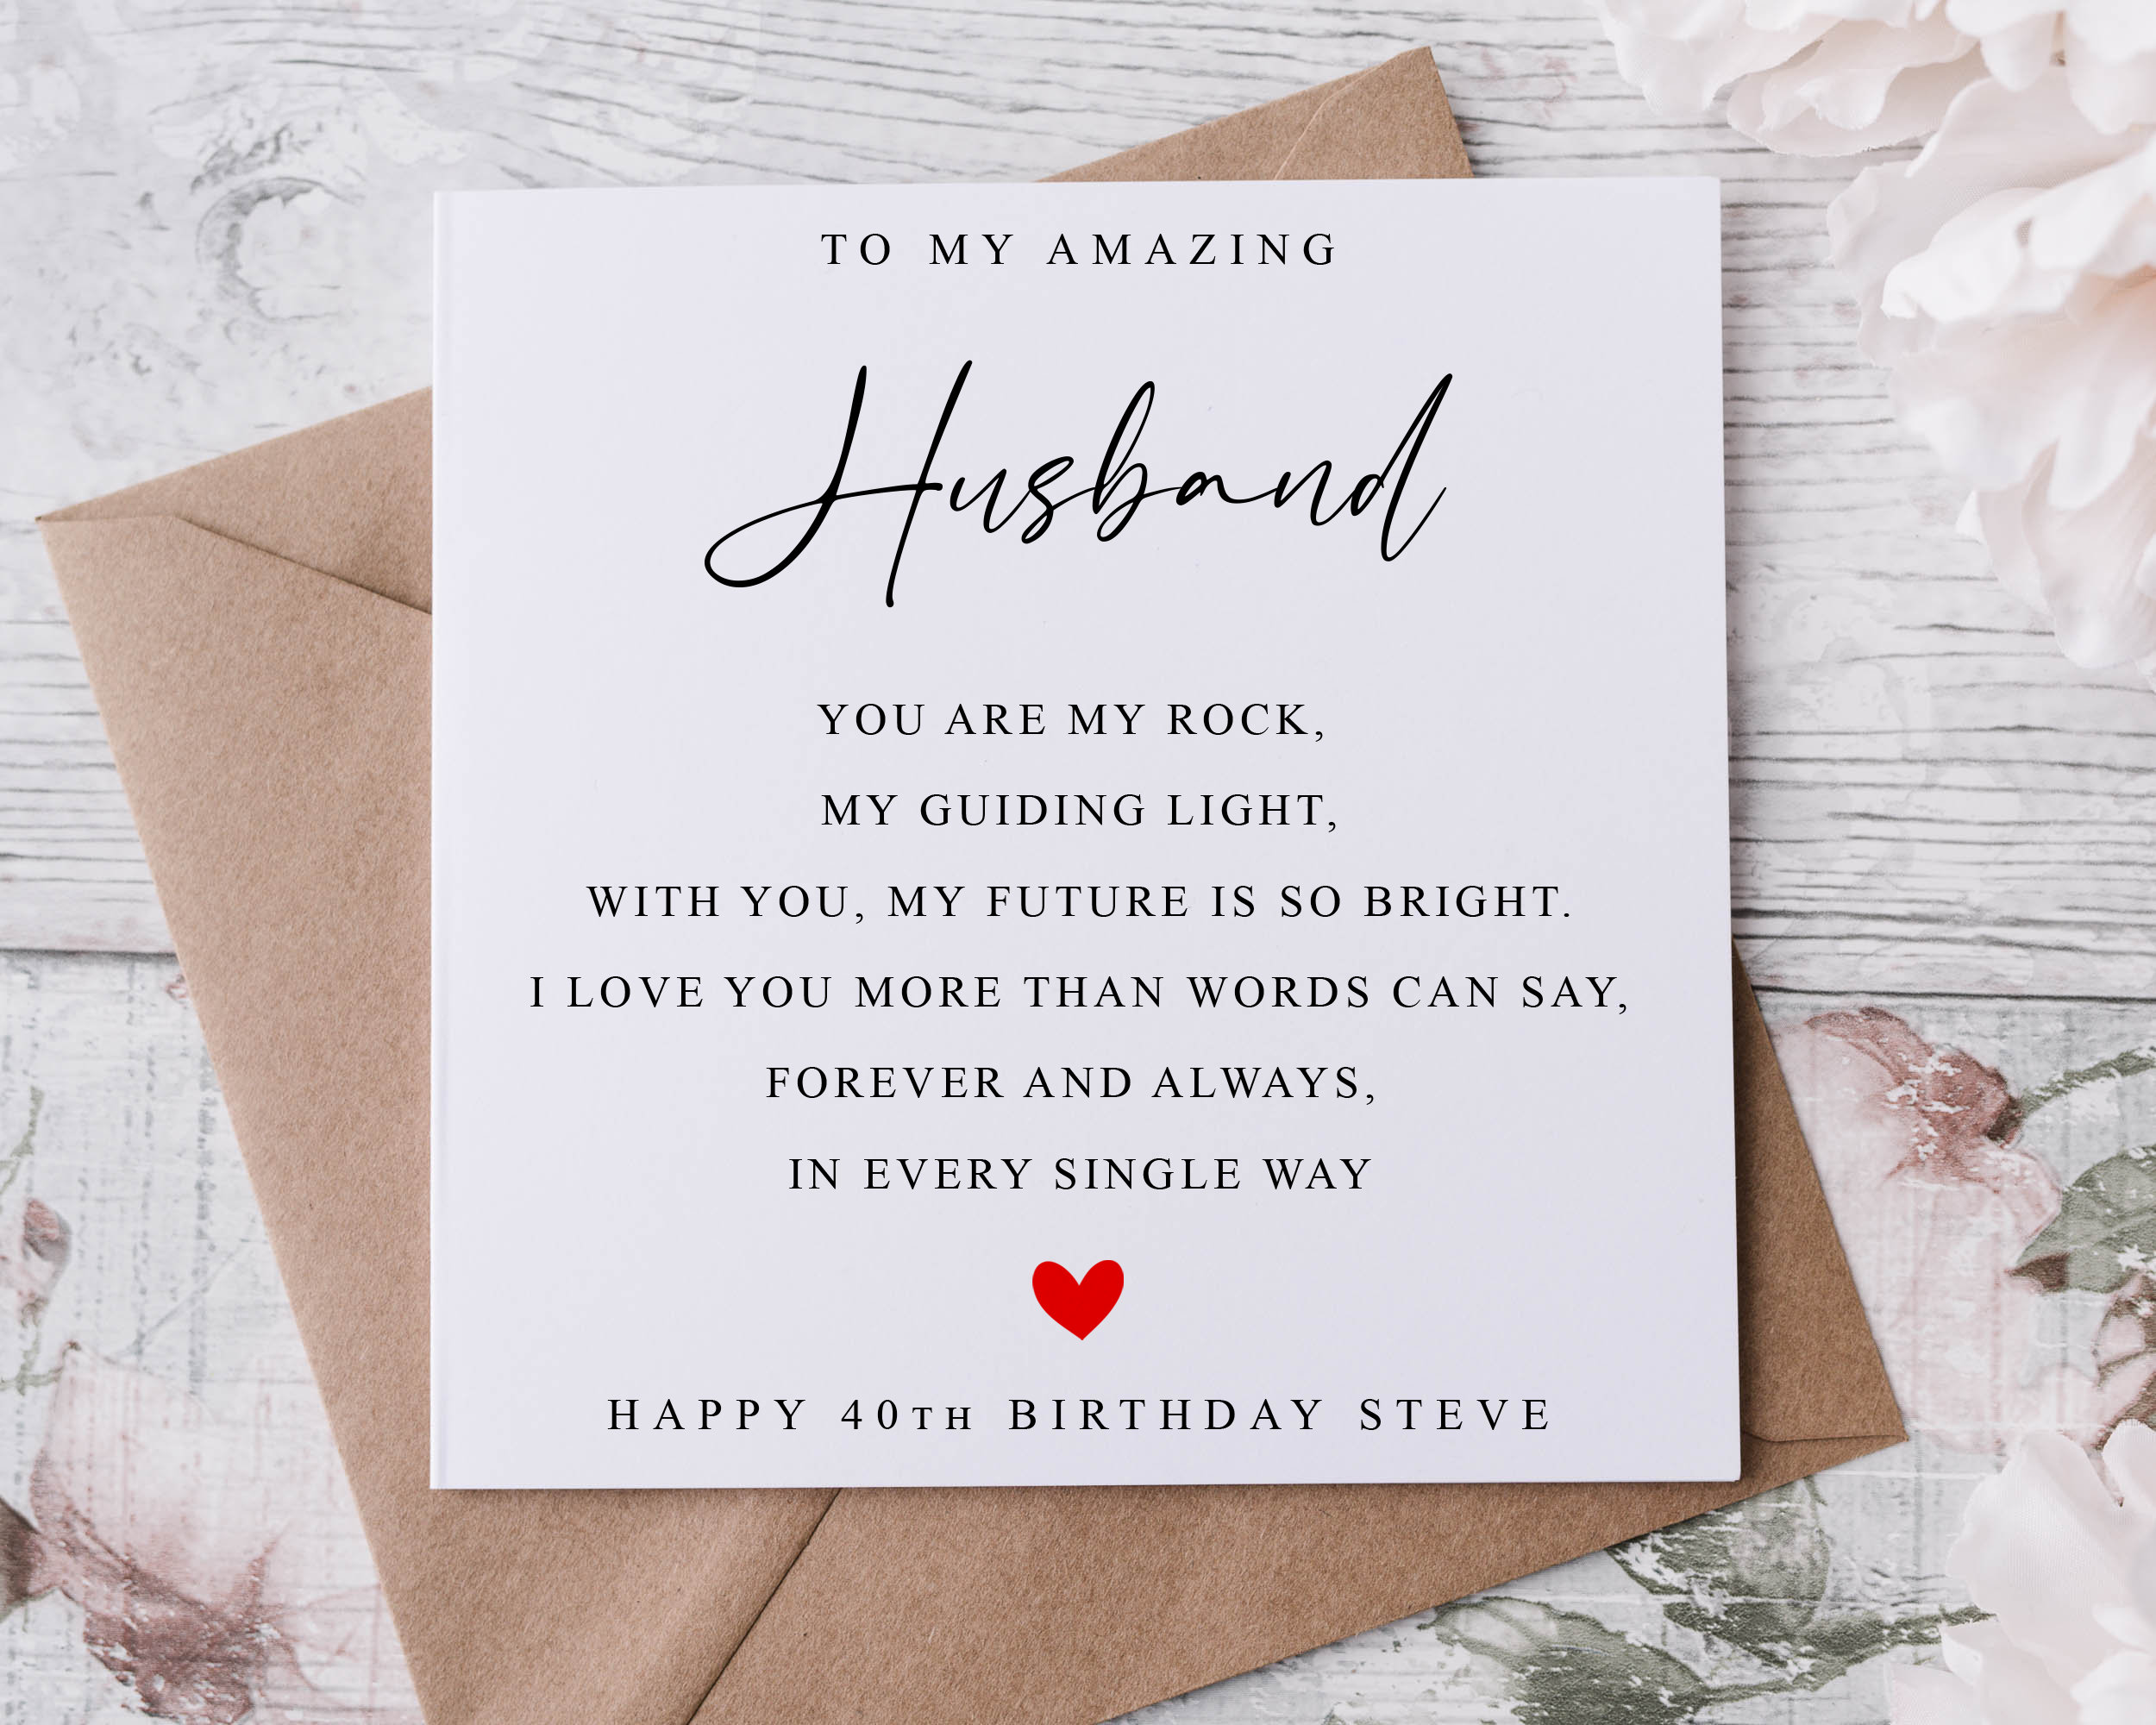 TO MY AMAZING
Husband
YOU ARE MY ROCK,
MY GUIDING LIGHT,
WITH YOU, MY FUTURE IS SO BRIGHT.
I LOVE YOU MORE THAN WORDS CAN SAY,
FOREVER AND ALWAYS,
IN EVERY SINGLE WAY
HAPPY 40TH BIRTHDAY STEVE